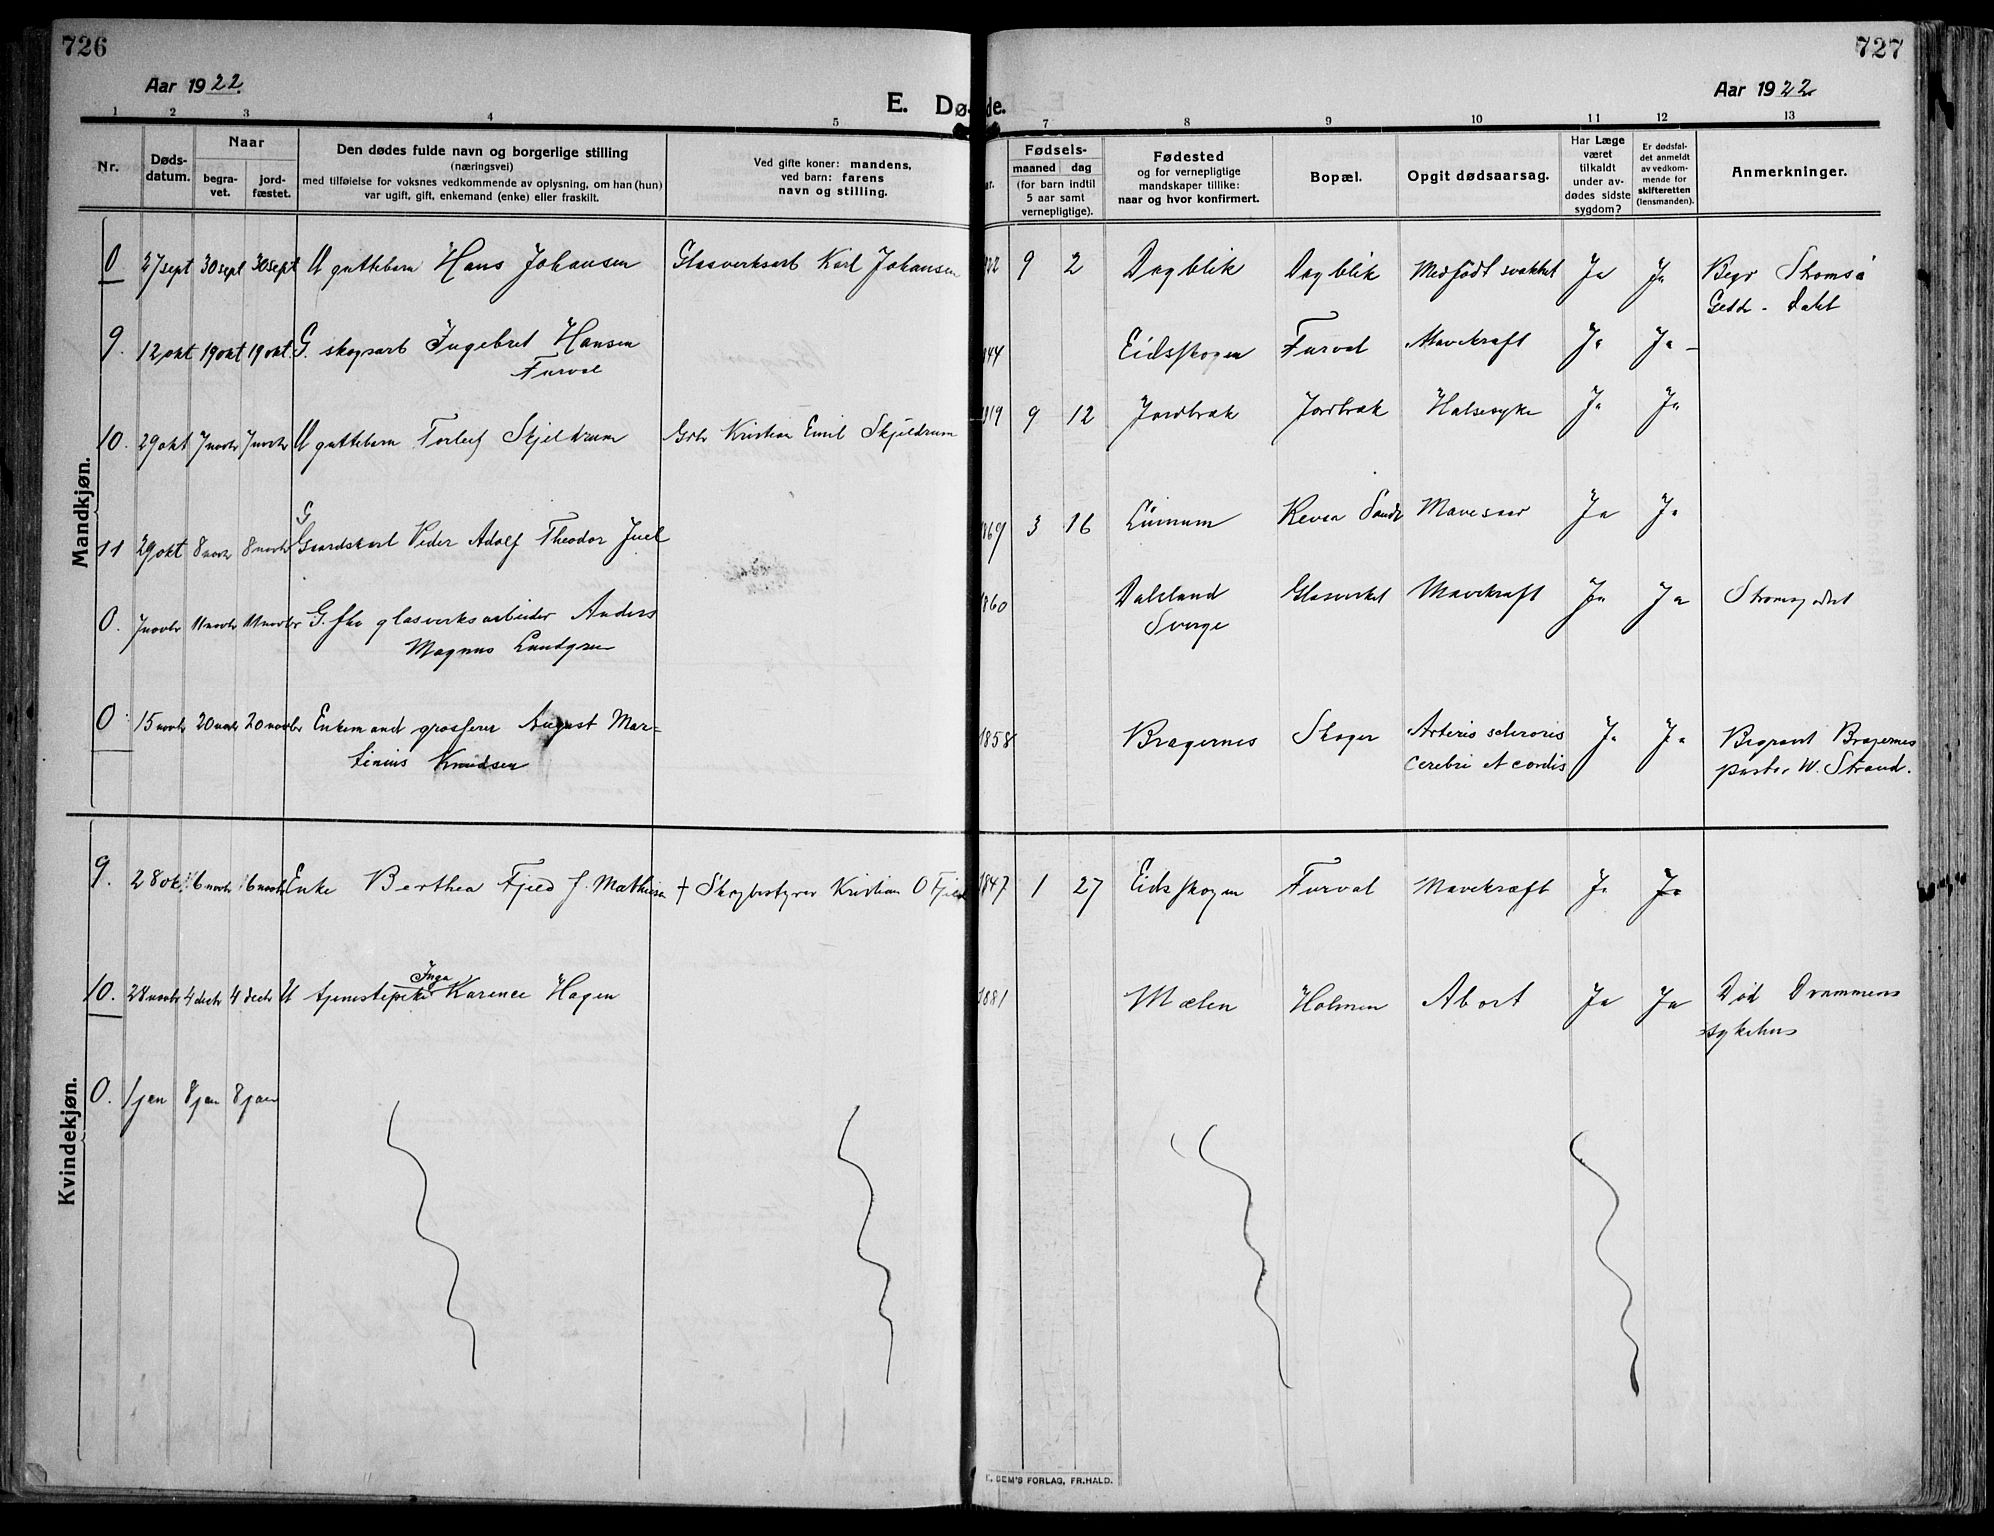 726
727
Aar 1922.
Aar 1922.
E. Dø
de.
1 2 3 4 5 7 8 9 10 11 12 13
Nr.
Døds-
datum.
Naar
begra-
vet.
jord-
fæstet.
Den dødes fulde navn og borgerlige stilling
(næringsvei)
med tilføielse for voksnes vedkommende av oplysning, om han (hun)
var ugift, gift, enkemand (enke) eller fraskilt.
Ved gifte koner: mandens,
ved barn: farens
navn og stilling.
Fødsels-
maaned dag
(for barn indtil
5 aar samt
vernepligtige).
Fødested
og for vernepligtige
mandskaper tillike:
naar og hvor konfirmert.
Bopæl.
Opgit dødsaarsag.
Har Læge
været
tilkaldt
under av-
dødes sidste
sygdom?
Er dødsfal-
det anmeldt
av vedkom-
mende for
skifteretten
(lensmanden).
Anmerkninger.
Mandkjøn.
0 27 sept 30 sept 30 sept U guttebarn Hans Johansen Glasverksarb Karl Johansen 922 9 2 Dagblik Dagblik Medfødt svakhet Ja Ja Begr Strømsø
Dahl
9. 12 okt 19 okt 19 okt G. skogsarb Ingebret Hansen 844 Eidsskogen Furval Mavekræft Ja Ja
Furval
10. 29 okt 7 novbr 7 novbr U guttebarn Torleif Skjeldrum Gbr Kristian Emil Skjeldrum 919 9 12 Jordbræk Jordbræk Halsesyke Ja Ja
G
11 29 okt 8 novbr 8 novbr Gaardskarl Peder Adolf Theodor Juel 869 3 16 Lurium Mavesaar Ja Ja
0. 7 novbr 11 novbr 11 novbr G. fhv glasverksarbeider Anders 1860 Dalsland Glasverket Mavekræft Ja Ja
Magnus Lundgren Sverge
0 15 novbr 20 novbr 20 novbr Enkemand grosserer August Mar- 1858 Bragernes Skoger Arterio scleroris Ja Ja Begravt Bragernes
tinius Knudsen cerebri et cordis pastor W. Strand.
Kvindekjøn.
9. 28 okt 6 novbr 6 novbr Enke Berthea Fjeld f. Mathisen + Skogbestyrer Kristian O Fjeld 1847 1 27 Eidsskogen Furval Mavekræft Ja Ja
10. 28 novbr 4 decbr 4 decbr U tjenestepike Inga Karence Hagen 1881 Mælen Holmen Abort Ja Ja Død Drammens
sykehus
0. 1 jan 8 jan 8 jan
E. SEM'S FORLAG, FR.HALD.